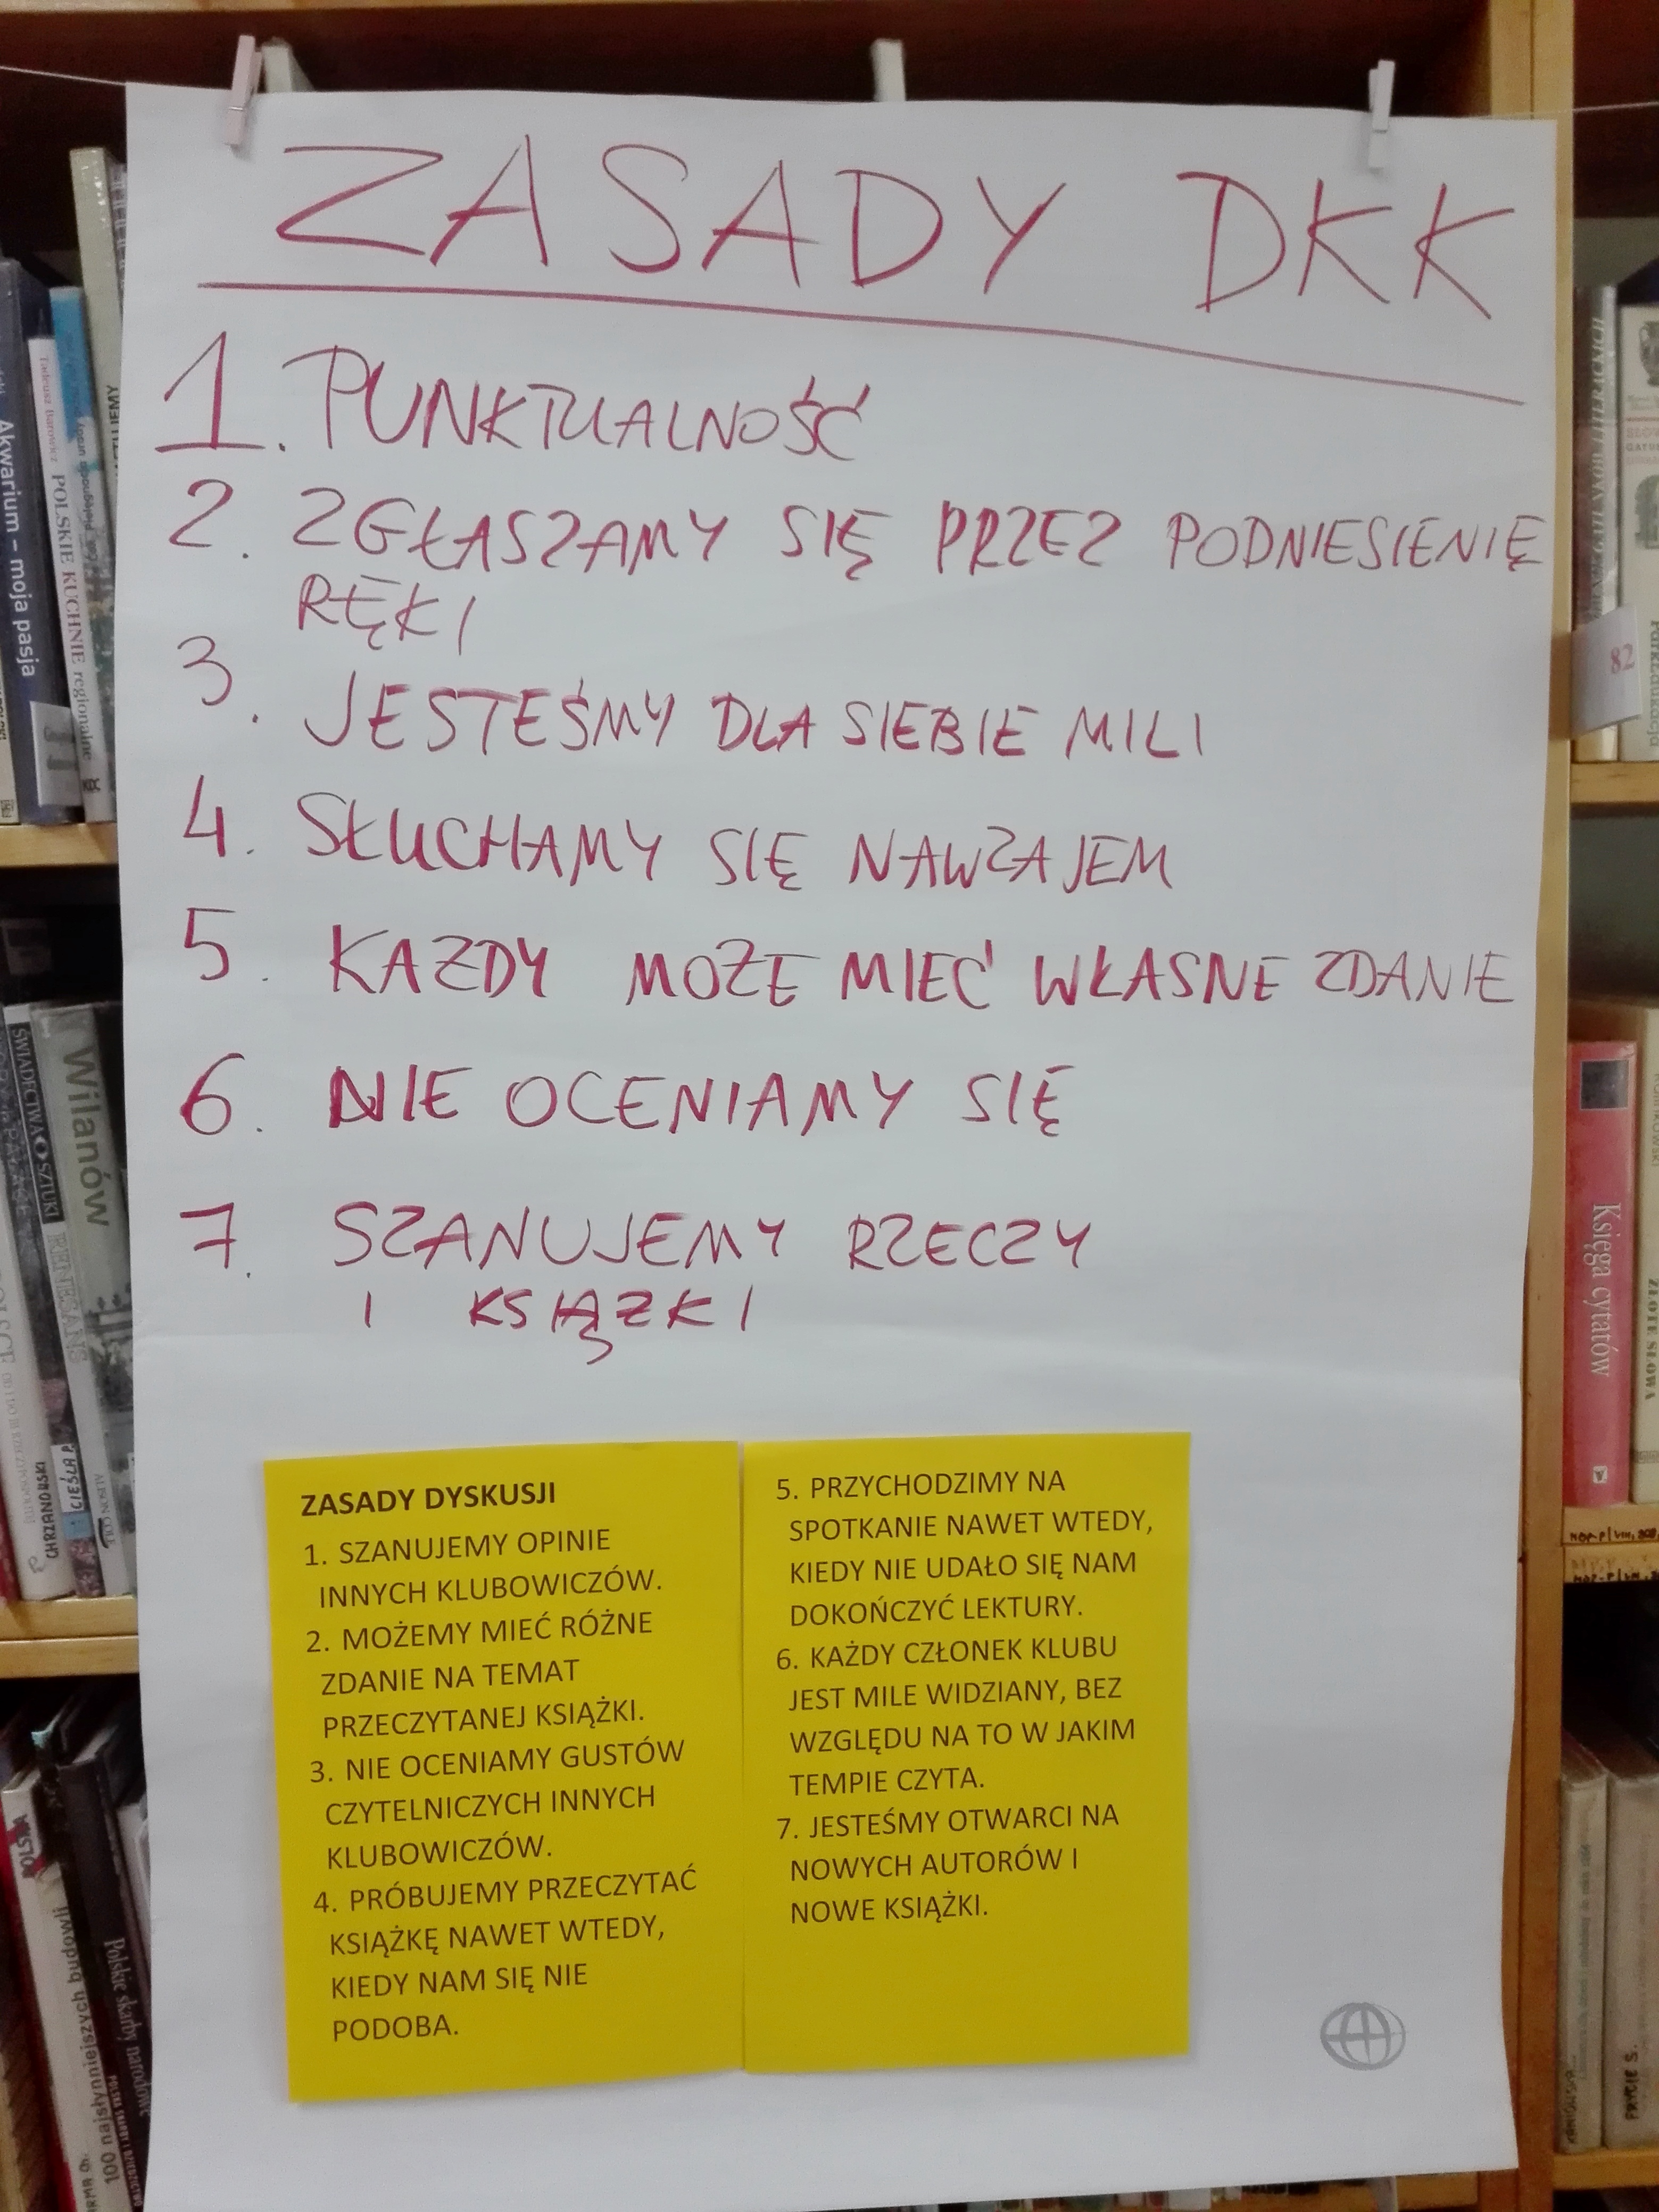 ZASADY DKK
1. PUNKTUALNOŚĆ
2. ZGŁASZAMY SIĘ PRZEZ PODNIESIENIĘ
RĘKI
3. JESTEŚMY DLA SIEBIE MILI
4. SŁUCHAMY SIĘ NAWZAJEM
5. KAZDY MOZE MIEĆ WŁASNE ZDANIE
6. NIE OCENIAMY SIĘ
7. SZANUJEMY RZECZY
I KSIĄZKI
ZASADY DYSKUSJI
1. SZANUJEMY OPINIE
INNYCH KLUBOWICZÓW.
2. MOŻEMY MIEĆ RÓŻNE
ZDANIE NA TEMAT
PRZECZYTANEJ KSIĄŻKI.
3. NIE OCENIAMY GUSTÓW
CZYTELNICZYCH INNYCH
KLUBOWICZÓW.
4. PRÓBUJEMY PRZECZYTAĆ
KSIĄŻKĘ NAWET WTEDY,
KIEDY NAM SIĘ NIE
PODOBA.
5. PRZYCHODZIMY NA
SPOTKANIE NAWET WTEDY,
KIEDY NIE UDAŁO SIĘ NAM
DOKOŃCZYĆ LEKTURY.
6. KAŻDY CZŁONEK KLUBU
JEST MILE WIDZIANY, BEZ
WZGLĘDU NA TO W JAKIM
TEMPIE CZYTA.
7. JESTEŚMY OTWARCI NA
NOWYCH AUTORÓW I
NOWE KSIĄŻKI.
Akwarium – moja pasja
Tadeusz Barowicz POLSKIE KUCHNIE regionalne
ŚWIADECTWA SZTUKI
Wilanów
CHRZANOWSKI
CIEŚLA P.
POLSKA
100 najsłynniejszych budowli
Polskie skarby narodowe
82
Księga cytatów
ZŁOTE SŁOWA